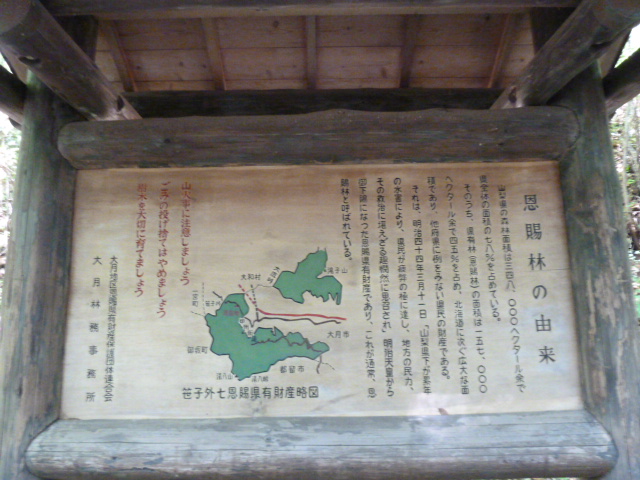 恩賜林の由来
山梨県の森林面積は三四八、〇〇〇ヘクタール余で
県全体の面積の七八％を占めている。
そのうち、県有林（恩賜林）の面積は一五七、〇〇〇
ヘクタール余で四五％を占め、北海道に次ぐ広大な面
積であり、他府県に例をみない県民の財産である。
それは、明治四十四年三月十一日「山梨県下が累年
の水害により、県民が疲弊の極に達し、地方の民力、
その救治に堪えざる趣憫然に思召され」明治天皇から
御下賜になった恩賜県有財産であり、これが通常、恩
賜林と呼ばれている。
滝子山
大和村
大月市
笹子町
御坂町
都留市
笹子外七恩賜県有財産略図
山火事に注意しましょう
ごみの投げ捨てはやめましょう
樹木を大切に育てましょう
大月地区恩賜県有財産保護団体連合会
大月林務事務所